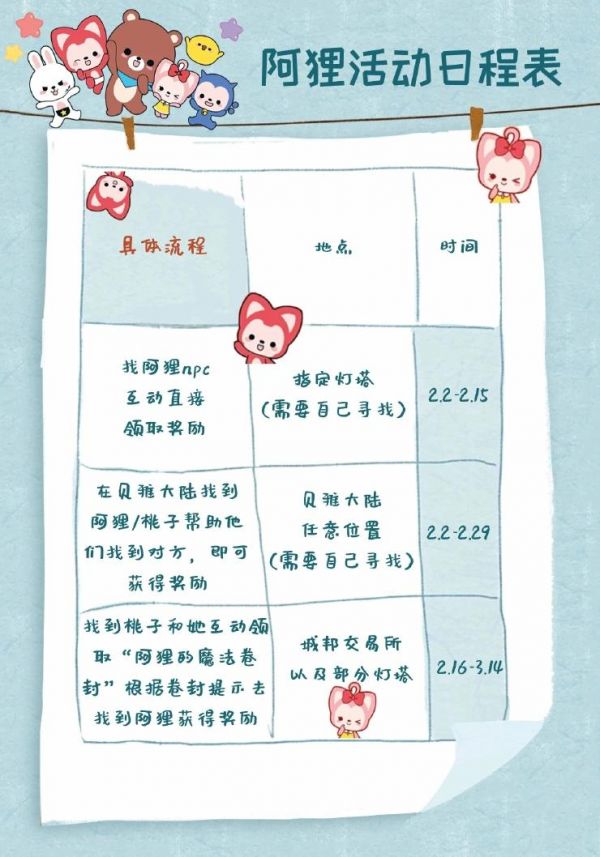 阿狸活动日程表
具体流程
地点
时间
找阿狸npc
互动直接
领取奖励
指定灯塔
(需要自己寻找)
2.2-2.15
在贝雅大陆找到
阿狸/桃子帮助他
们找到对方，即可
获得奖励
贝雅大陆
任意位置
(需要自己寻找)
2.2-2.29
找到桃子和她互动领
取“阿狸的魔法卷
封”根据卷封提示去
找到阿狸获得奖励
城邦交易所
以及部分灯塔
2.16-3.14